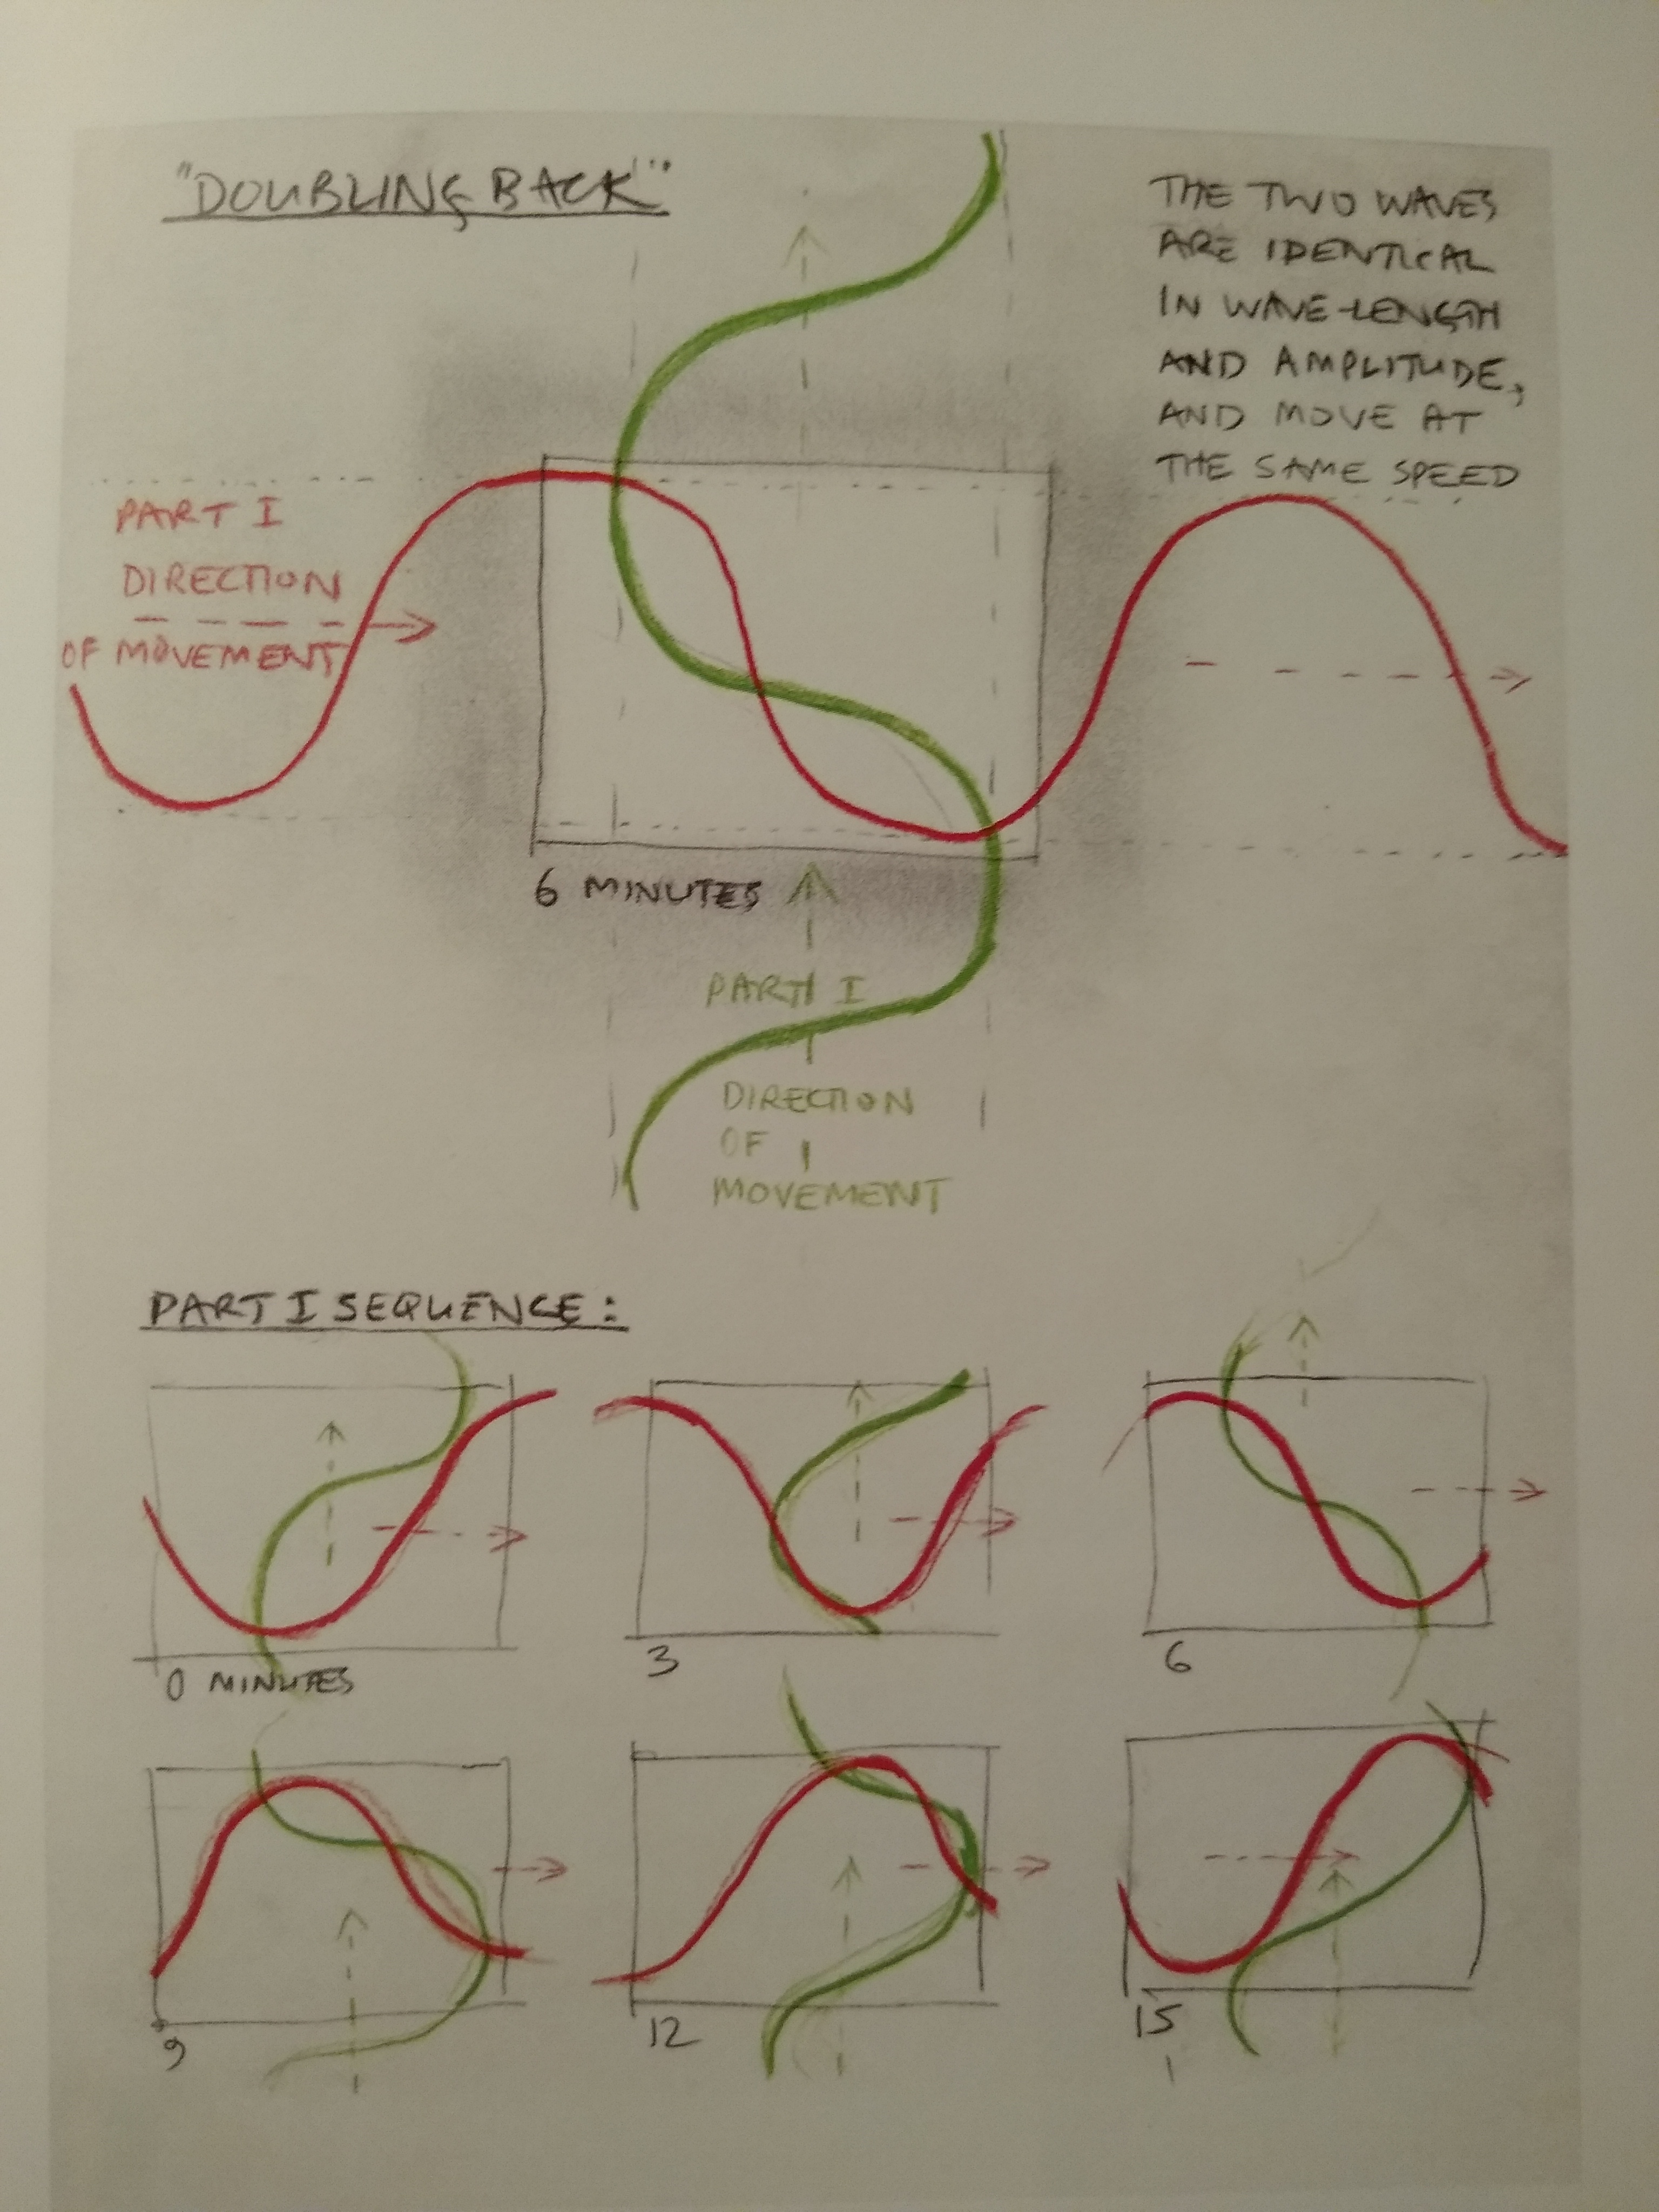 "DOUBLING BACK"
THE TWO WAVES
ARE IDENTICAL
IN WAVE-LENGTH
AND AMPLITUDE,
AND MOVE AT
THE SAME SPEED
PART I
DIRECTION
OF MOVEMENT
6 MINUTES
PART I
DIRECTION
OF
MOVEMENT
PART I SEQUENCE:
0 MINUTES
3
6
9
12
15